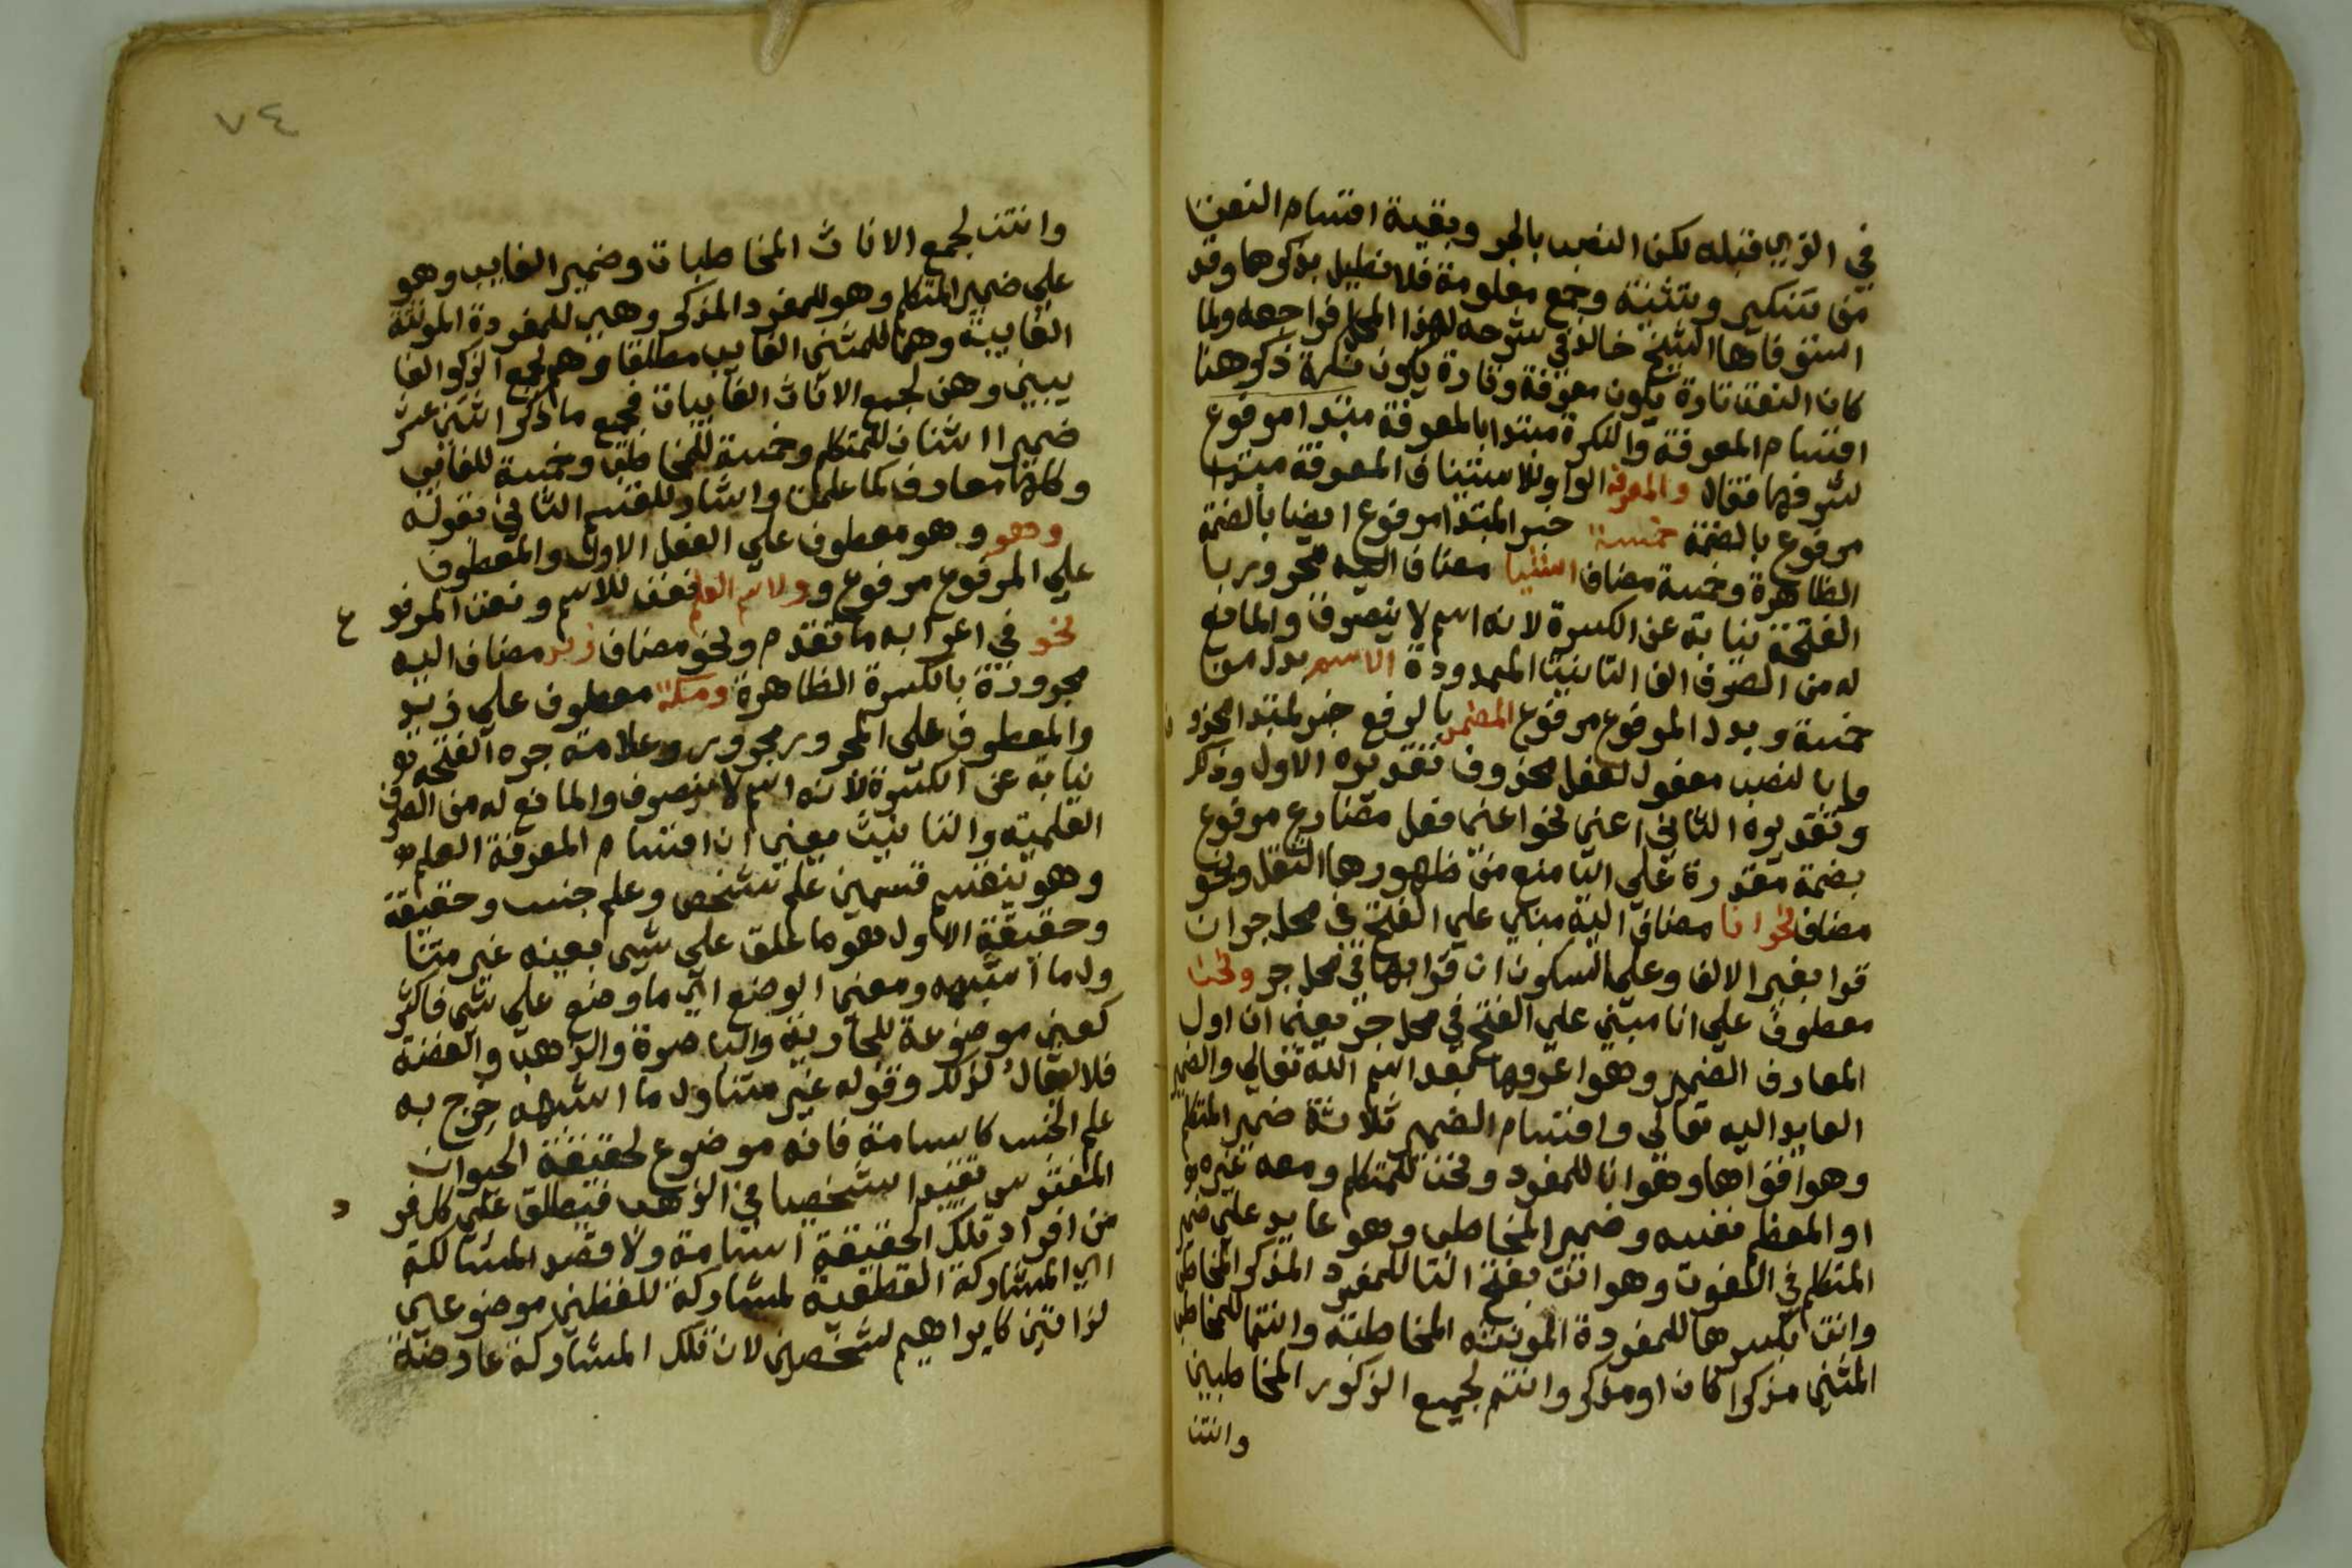 في الذي قبله لكن النصب بالجر وبقية اقسام النعت
من تنكير وتثنية وجمع معلومة فلا نطيل بذكرها وقد
استوفاها الشيخ خالد في شرحه لهذا المحل فراجعه ولما
كان النعت تارة يكون معرفة وتارة يكون نكرة ذكر هنا
اقسام المعرفة والنكرة مبتدا بالمعرفة مبتدا مرفوع
لشرفها فقال والمعرفة الواو للاستيناف المعرفة مبتدا
مرفوع بالضمة خمسة خبر المبتدا مرفوع ايضا بالضمة
الظاهرة وخمسة مضاف اشيا مضاف اليه مجرور با
الفتحة نيابة عن الكسرة لانه اسم لا ينصرف والمانع
له من الصرف الف التانيث الممدودة الاسم بدل من
خمسة وبدل المرفوع مرفوع المضمر بالرفع خبر لمبتدا محذو ف
وبالنصب مفعول لفعل محذوف تقديره الاول وذكر
وتقديره الثاني اعني نحو اعني فعل مضارع مرفوع
بضمة مقدرة علي اليا منع من ظهورها الثقل ونحو
مضاف نحو انا مضاف اليه مبني علي الفتح في محل جر ان
قرا بغير الالف وعلي السكون ان قرا بها في محل جر ونحن
معطوف علي انا مبني علي الفتح في محل جر يعني ان اول
المعارف الضمير وهو اعرفها بعد اسم الله تعالي والضمير
العايد اليه تعالي واقسام الضمير ثلاثة ضمير المتكلم
وهو اقواها وهو انا للمفرد ونحن للمتكلم ومعه غيره
او المعظم نفسه وضمير المخاطب وهو عايد علي ضمير
المتكلم في القوة وهو انت بفتح التا للمفرد المذكر المخاطب
وانت بكسرها للمفردة المونثه المخاطبة وانتما للمخاطب
المثني مذكرا كان او مذكر وانتم لجميع الذكور المخاطبين
وانتن
٧٤
وانتن لجمع الاناث المخاطبات وضمير الغايب وهو
علي ضمير المتكلم وهو للمفرد المذكر وهي للمفردة المونثة
الغايبة وهما للمثني الغايب مطلقا وهم لجمع الذكر الغا
يبين وهن لجميع الاناث الغايبات فجميع ما ذكر اثني عشر
ضميرا اثنان للمتكلم وخمسة للمخاطب وخمسة للغايب
وكلها معارف كما علمت واشار للقسم الثاني بقوله
وهو وهو معطوف علي الفعل الاول والمعطوف
علي المرفوع مرفوع و والاسم العلم نعت للاسم ونعت المرفو ع
نحو في اعرابه ما تقدم ونحو مضاف زيد مضاف اليه
مجرورة بالكسرة الظاهرة ومكة معطوف علي زيد
والمعطوف علي المجرور مجرور وعلامة جره الفتحة
نيابة عن الكسرة لانه اسم لا ينصرف والمانع له من الصرف
العلمية والتانيث يعني ان اقسام المعرفة العلم
وهو ينقسم قسمين علم شخص وعلم جنس وحقيقة
وحقيقة الاول هو ما علق علي شيي بعينه غير متنا
ول ما اشبهه ومعني الوضع اي ما وضع علي شي فاكثر
كعين موضوعة للجارية والباصرة والذهب والفضة
فلا يقال لذلك وقوله غير متناول ما اشبهه خرج به
علم الجنس كاسامة فانه موضوع لحقيقة الحيوان
المفترس تقيدا شخصيا في الذهب فيطلق علي كل فر د
من افراد تلك الحقيقة اسامة ولا قصد المشاكلة
اي المشاركة القطعية لمشاركة للفظين موضوعين
لذاتين كابراهيم لشخصين لان تلك المشاركة عارضة